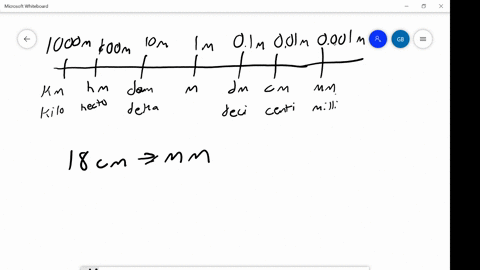 Microsoft Whiteboard
CB
1000m 100m 10m 1m 0.1m 0.01m 0.001m
Km hm dam m dm cm mm
Kilo hecto deka deci centi milli
18 cm → mm